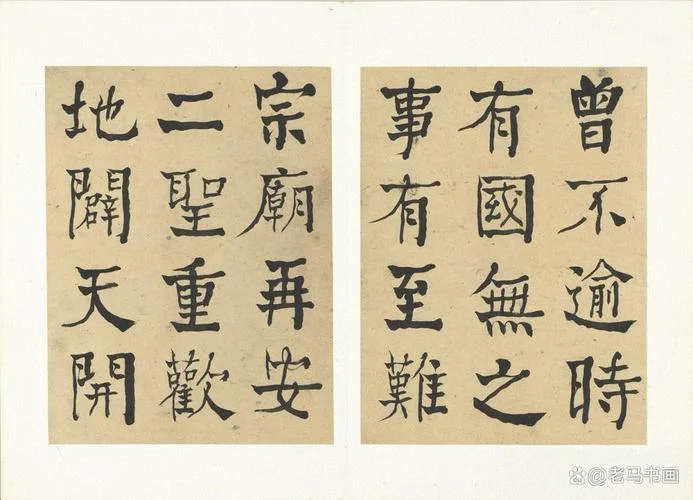 曾不逾時
有國無之
事有至難
宗廟再安
二聖重歡
地闢天開
@老马书画